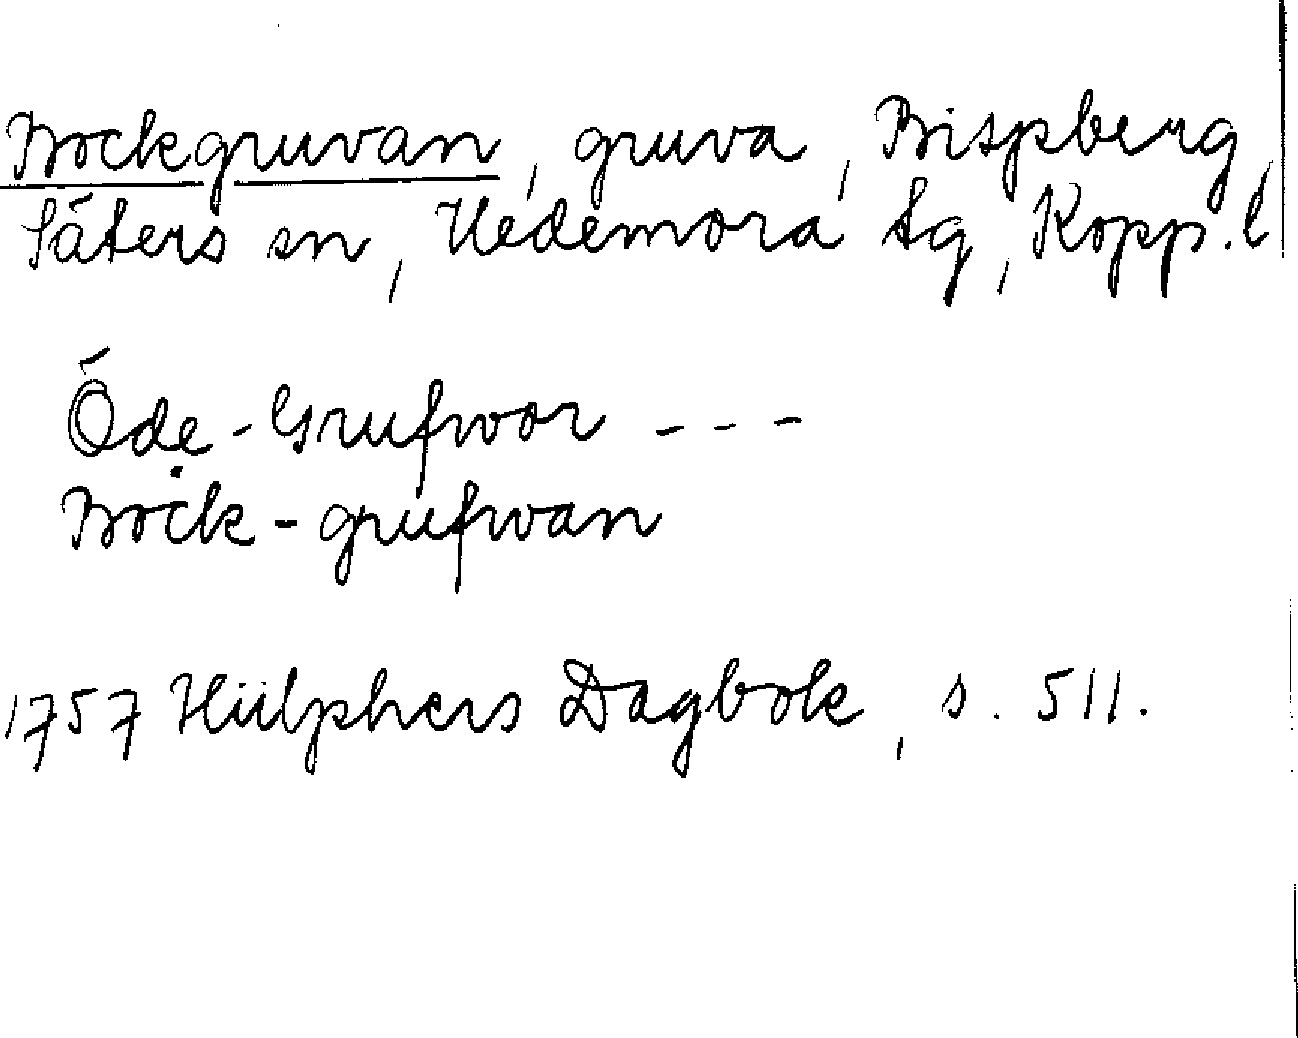 Bockgruvan, gruva, Bispberg,
Säters sn, Hedemora tg, Kopp. l
Öde-Grufwor - - -
Bock-grufwan
1757 Hülphers Dagbok, s. 511.